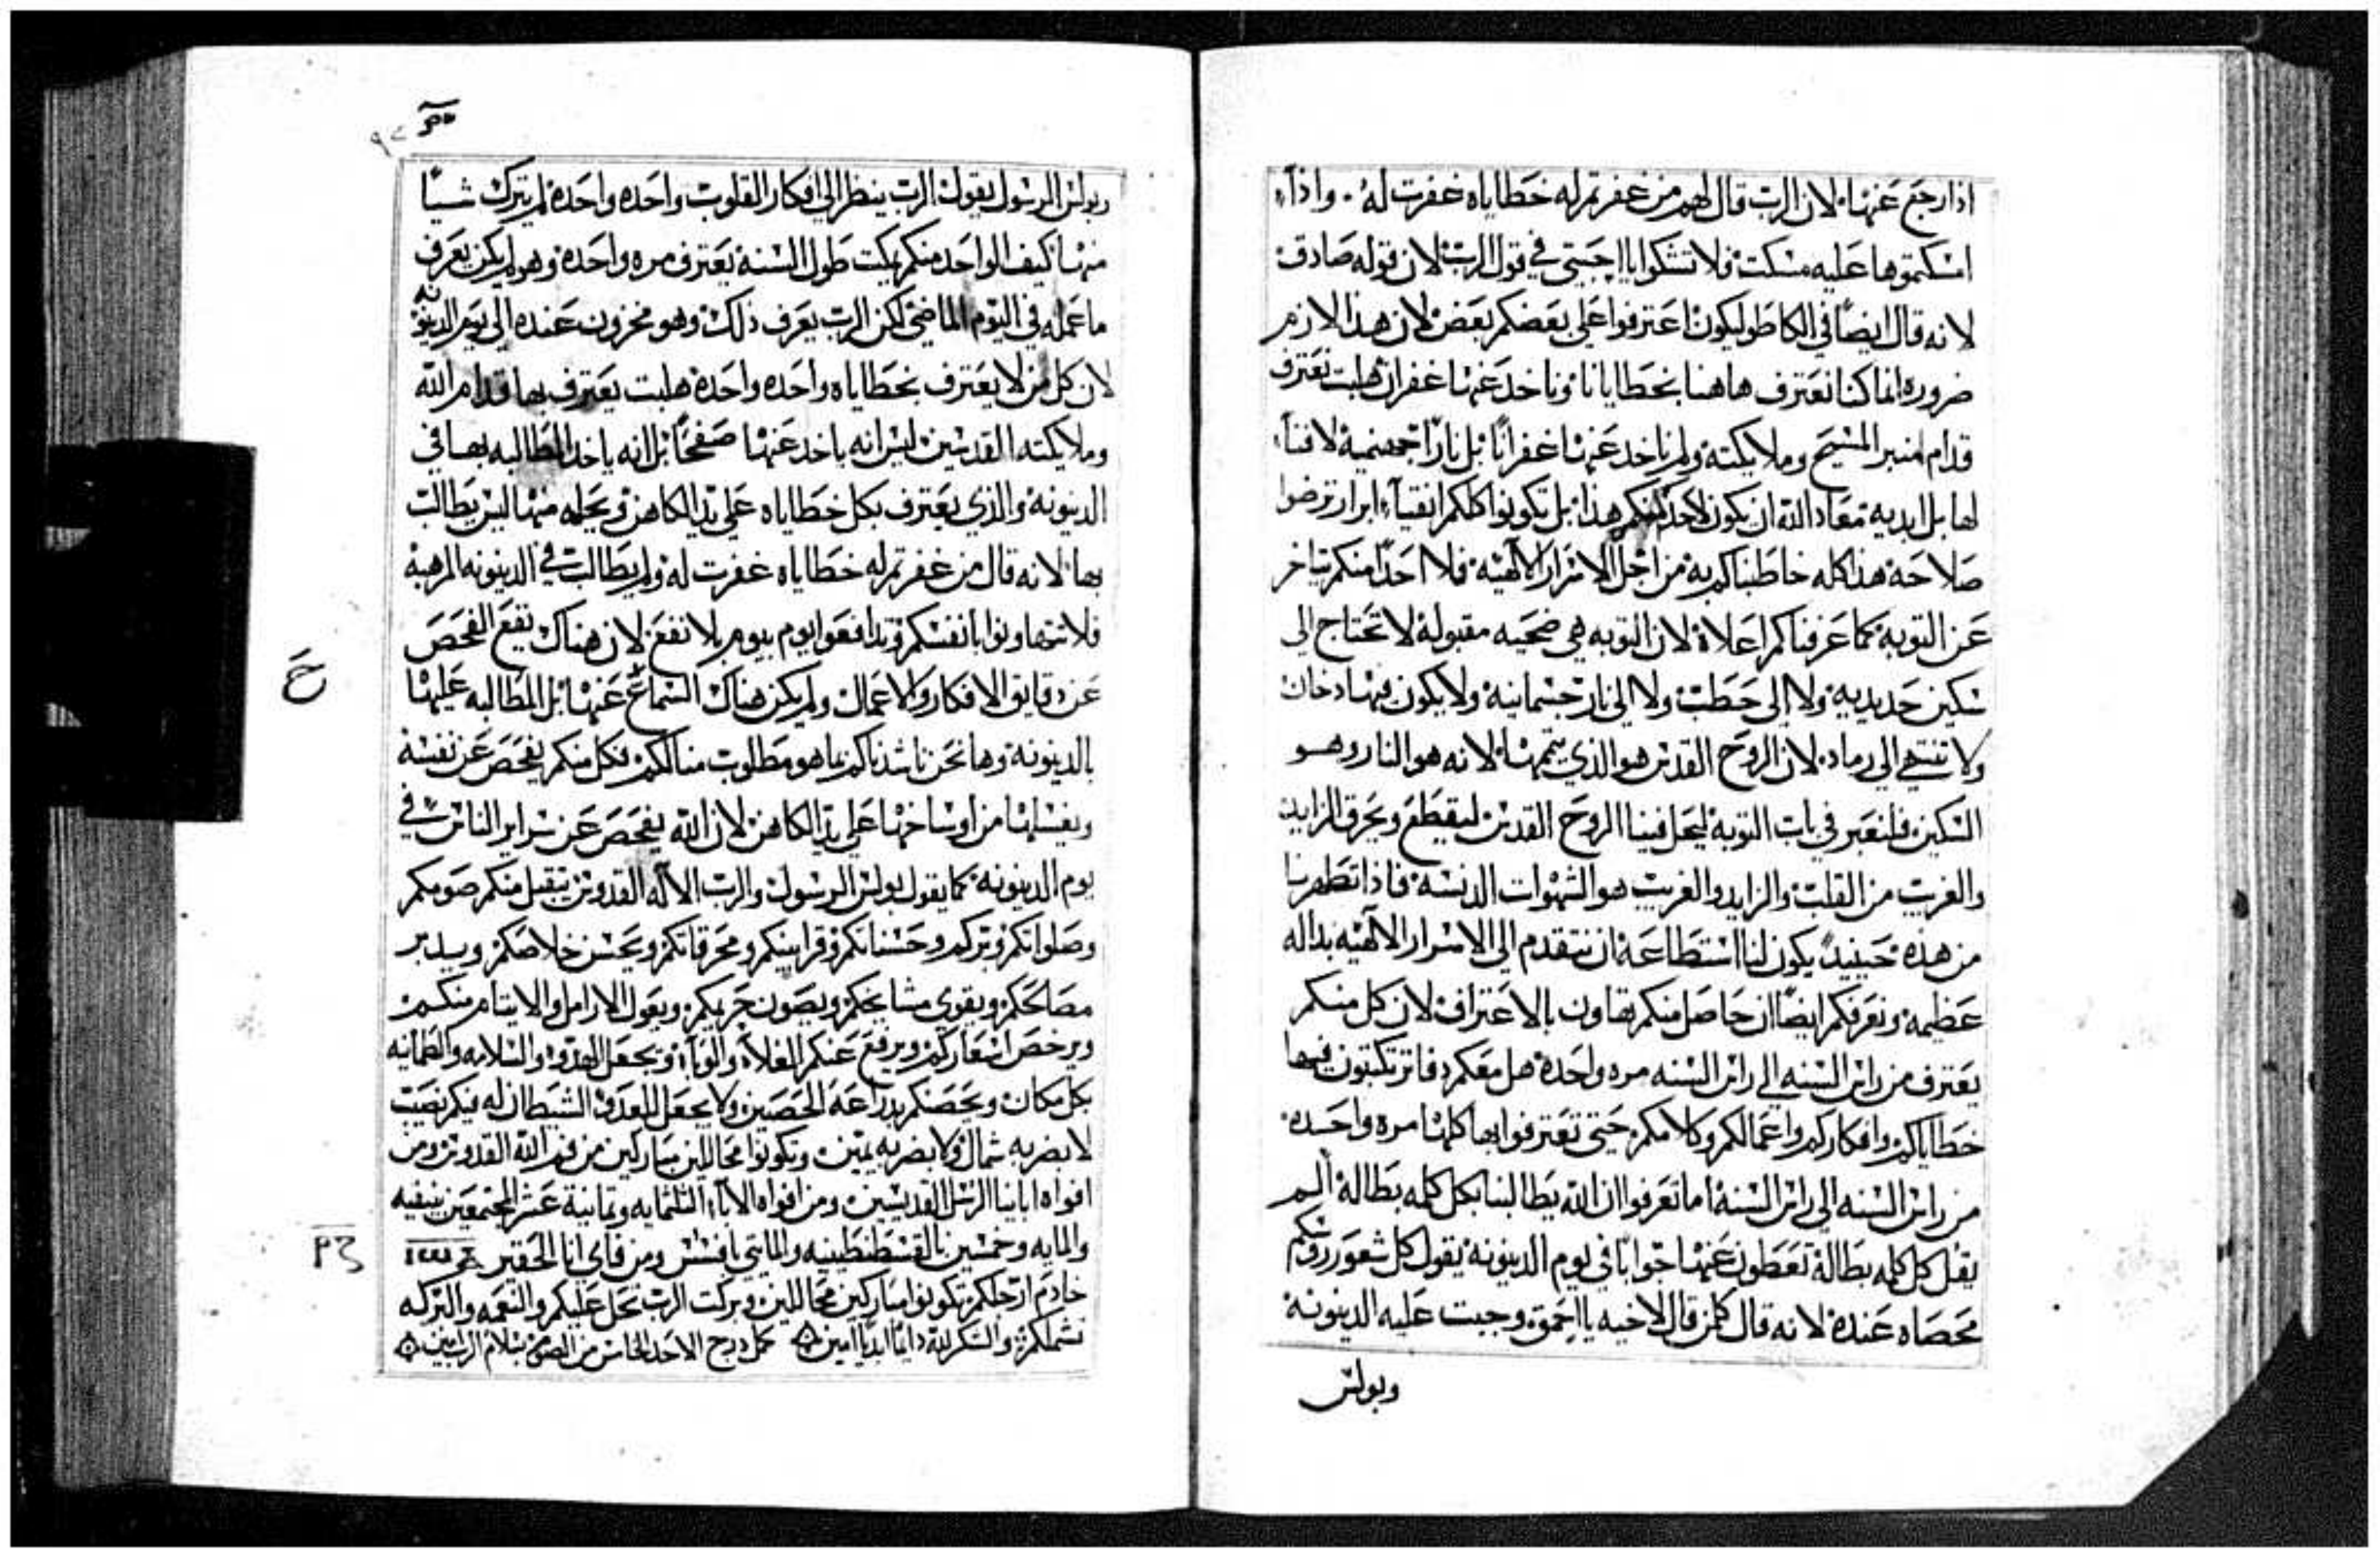 اذا رجع عنها لان الرب قال لهم من غفرتم له خطاياه غفرت له واذا
امسكتموها عليه مسكت فلا تشكوا يا احبتي في قول الرب لان قوله صادق
لانه قال ايضًا في الكاطوليكون اعترفوا على بعضكم بعض لان هذا لازم
ضروره انما كنا نعترف هاهنا بخطايانا وناخد عنها غفران هلبت نعترف
قدام منبر المسيح وملايكته ولم ناخد عنها غفرانًا بل نارًا جهنمية لا فنآ
لها بل ابديه معاد الله ان يكون لاحد منكم هذا بل تكونوا كلكم انقيآ ابرار ترضوا
صلاحه هذا كله خاطبناكم به من اجل الاسرار الالهية فلا احدًا منكم يتاخر
عن التوبه كما عرفناكم اعلاه لان التوبه هي ضحيه مقبولة لا تحتاج الى
سكين حديديه ولا الى حطب ولا الى نار جسمانية ولا يكون فيها دخان
ولا تنتهي الى رماد لان الروح القدس هو الذي يتمها لانه هو النار وهو
السكين فلنعبر في باب التوبة ليحل فينا الروح القدس ليقطع ويحرق الزايد
والغريب من القلب والزايد والغريب هو الشهوات الدنسة فاذا تطهرنا
من هذه حينيدٍ يكون لنا استطاعة ان نتقدم الى الاسرار الالهيه بداله
عظيمه ونعرفكم ايضًا ان حاصل منكم تهاون بالاعتراف لان كل منكم
يعترف من راس السنه الى راس السنه مره واحدة هل معكم دفاتر تكتبون فيها
خطاياكم وافكاركم واعمالكم وكلامكم حتى تعترفوا بها كلها مره واحده
من راس السنه الى راس السنة اما تعرفوا ان الله يطالبنا بكل كلمه بطالة الم
يقل كل كلمه بطالة تعطون عنها جوابًا في يوم الدينونة يقول كل شعور روسكم
محصاه عنده لانه قال كلمن قال لاخيه يا احمق وجبت عليه الدينونة
وبولس
وبولس الرسول يقول الرب ينظر الى افكار القلوب واحده واحدة لم يترك شيًا
منها كيف الواحد منكم يمكت طول السنة يعترف مره واحدة وهو لم يكن يعرف
ما عمله في اليوم الماضي لكن الرب يعرف ذلك وهو مخزون عنده الى يوم الدينونة
لان كل من لا يعترف بخطاياه واحده واحدة هلبت يعترف بها قدام الله
وملايكته القدسين ليس انه ياخد عنها صفحًا بل انه ياخد المطالبه بها في
الدينونة والذي يعترف بكل خطاياه على يد الكاهن ويحله منها ليس يطالب
بها لانه قال من غفرتم له خطاياه غفرت له ولم يطالب في الدينونه المرهبة
فلا تتهاونوا بانفسكم وتدافعوا يوم بيوم بلا نفع لان هناك تقع الفحص
عن دقايق الافكار والاعمال ولم يكن هناك السماع عنها بل المطالبه عليها
بالدينونة وها نحن ناشدناكم بما هو مطلوب منا لكم فكل منكم يفحص عن نفسه
ويغسلها من اوساخها على يد الكاهن لان الله يفحص عن سراير الناس في
يوم الدينونه كما يقول بولس الرسول والرب الاله القدوس يتقبل منكم صومكم
وصلواتكم وبركم وحسناتكم وقرابينكم ومحرقاتكم ويحسن خلاصكم ويدبر
مصالحكم ويقوي مشايخكم ويصون حريمكم ويعول الارامل والايتام منكم
ويرخص اسعاركم ويرفع عنكم الغلآ والوبآ ويجعل الهدو والسلامه والطمانيه
بكل مكان ويحصنكم بدراعة الحصين ولا يجعل للعدو الشيطان له فيكم نصيب
لا بضربه شمال ولا بضربه يمين وتكونوا محاللين مباركين من فم الله القدوس ومن
افواه ابايينا الرسل القديسين ومن افواه الابآ الثلثمايه وتمانية عشر المجتمعين بنيقيه
والمايه وخمسين بالقسطنطينيه والمايتي بافسس ومن فاي انا الحقير
خادم ارجلكم تكونوا مباركين محاللين وبركت الرب تحل عليكم والنعمه والبركه
تشملكم والشكر لله دايمًا ابديًا امين كمل درج الاحد الخامس من الصوم بسلام الرب امين
ح